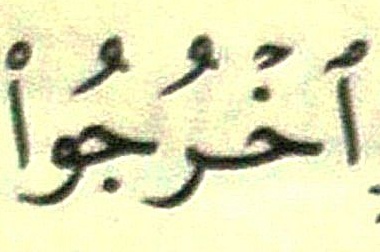 ٱخْرُجُوا۟